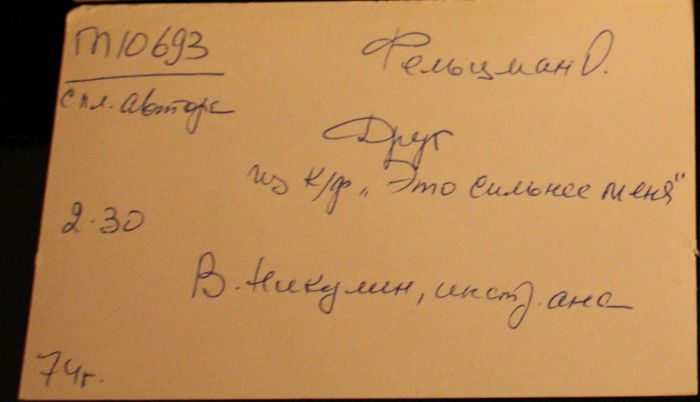 М10693
Фельцман О.
сл. автора
Друг
из к/ф „Это сильнее меня"
2-30
В. Никулин, инстр. анс
74г.